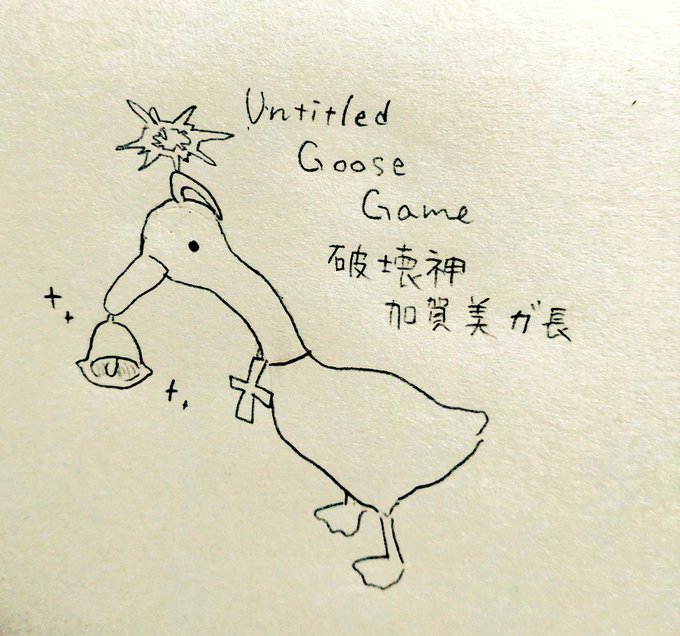 Untitled
Goose
Game
破壊神
加賀美ガ長